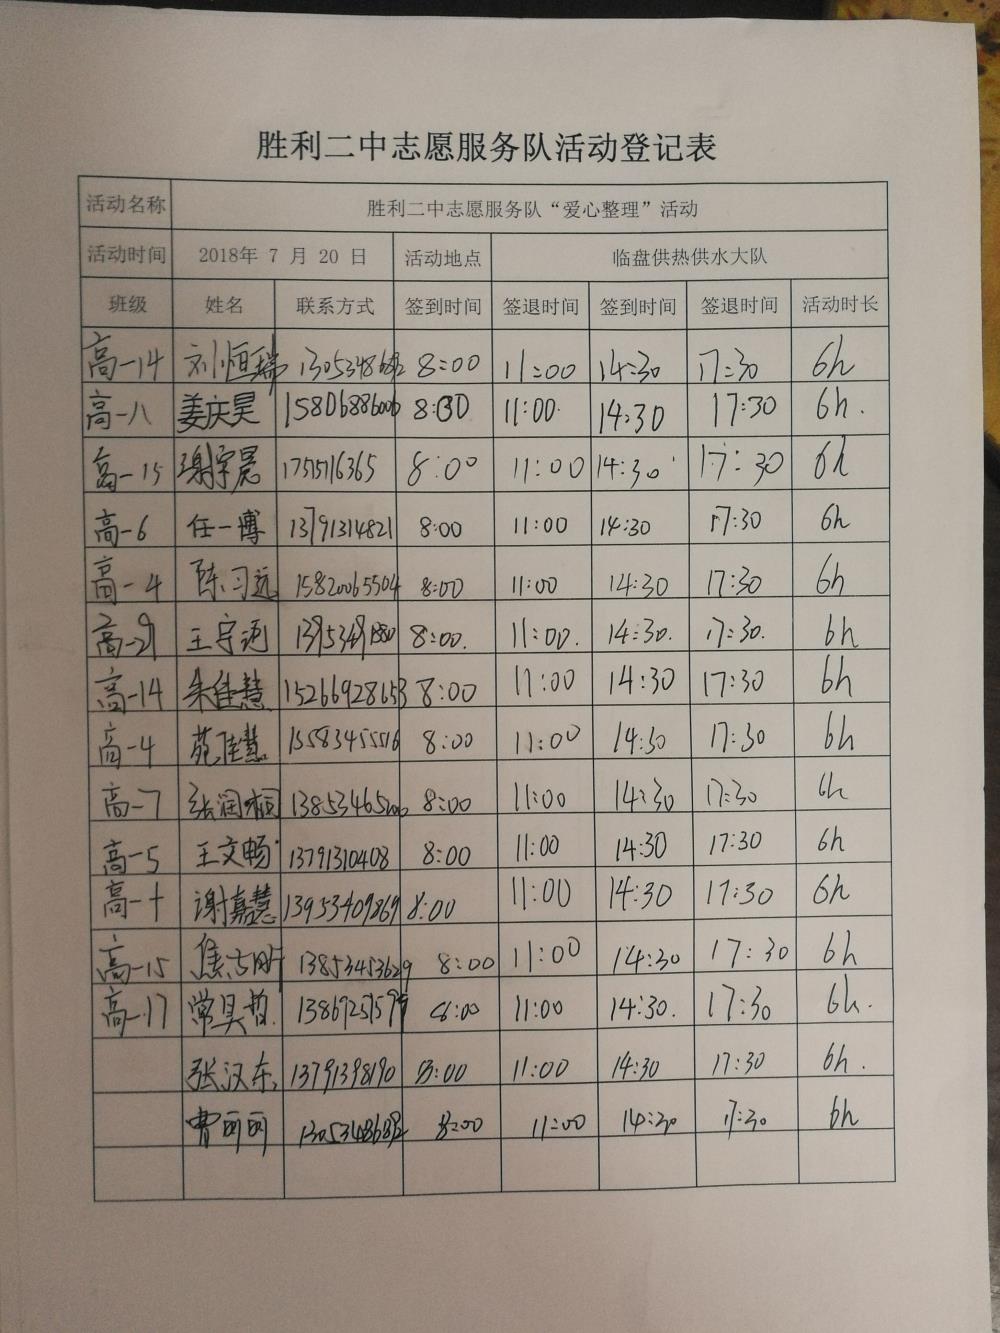 胜利二中志愿服务队活动登记表
活动名称 胜利二中志愿服务队“爱心整理”活动
活动时间 2018年 7 月 20 日 活动地点 临盘供热供水大队
班级 姓名 联系方式 签到时间 签退时间 签到时间 签退时间 活动时长
高一14 刘恒瑞 8:00 11:00 14:30 17:30 6h
高一八 姜庆昊 15806886006 8:00 11:00 14:30 17:30 6h.
高一15 谢宇晨 17515116365 8:00 11:00 14:30 17:30 6h
高一6 任一博 13791314821 8:00 11:00 14:30 17:30 6h
高一4 陈习远 15820065504 8:00 11:00 14:30 17:30 6h
王宇 8:00. 11:00. 14:30. 17:30. 6h
高一14 朱佳慧 15266928653 8:00 11:00 14:30 17:30 6h
高一4 苑佳慧 15583455516 8:00 11:00 14:30 17:30 6h
高一7 张润 8:00 11:00 14:30 17:30 6h
高一5 王文畅 13791310408 8:00 11:00 14:30 17:30 6h
高一十 谢嘉慧 13953409869 8:00 11:00 14:30 17:30 6h
高一15 焦 13853453629 8:00 11:00 14:30 17:30 6h
高一17 常昊哲 8:00 11:00 14:30. 17:30 6h.
张汉东 13791398190 8:00 11:00 14:30 17:30 6h.
曹丽丽 8:00 11:00 14:30 17:30 6h